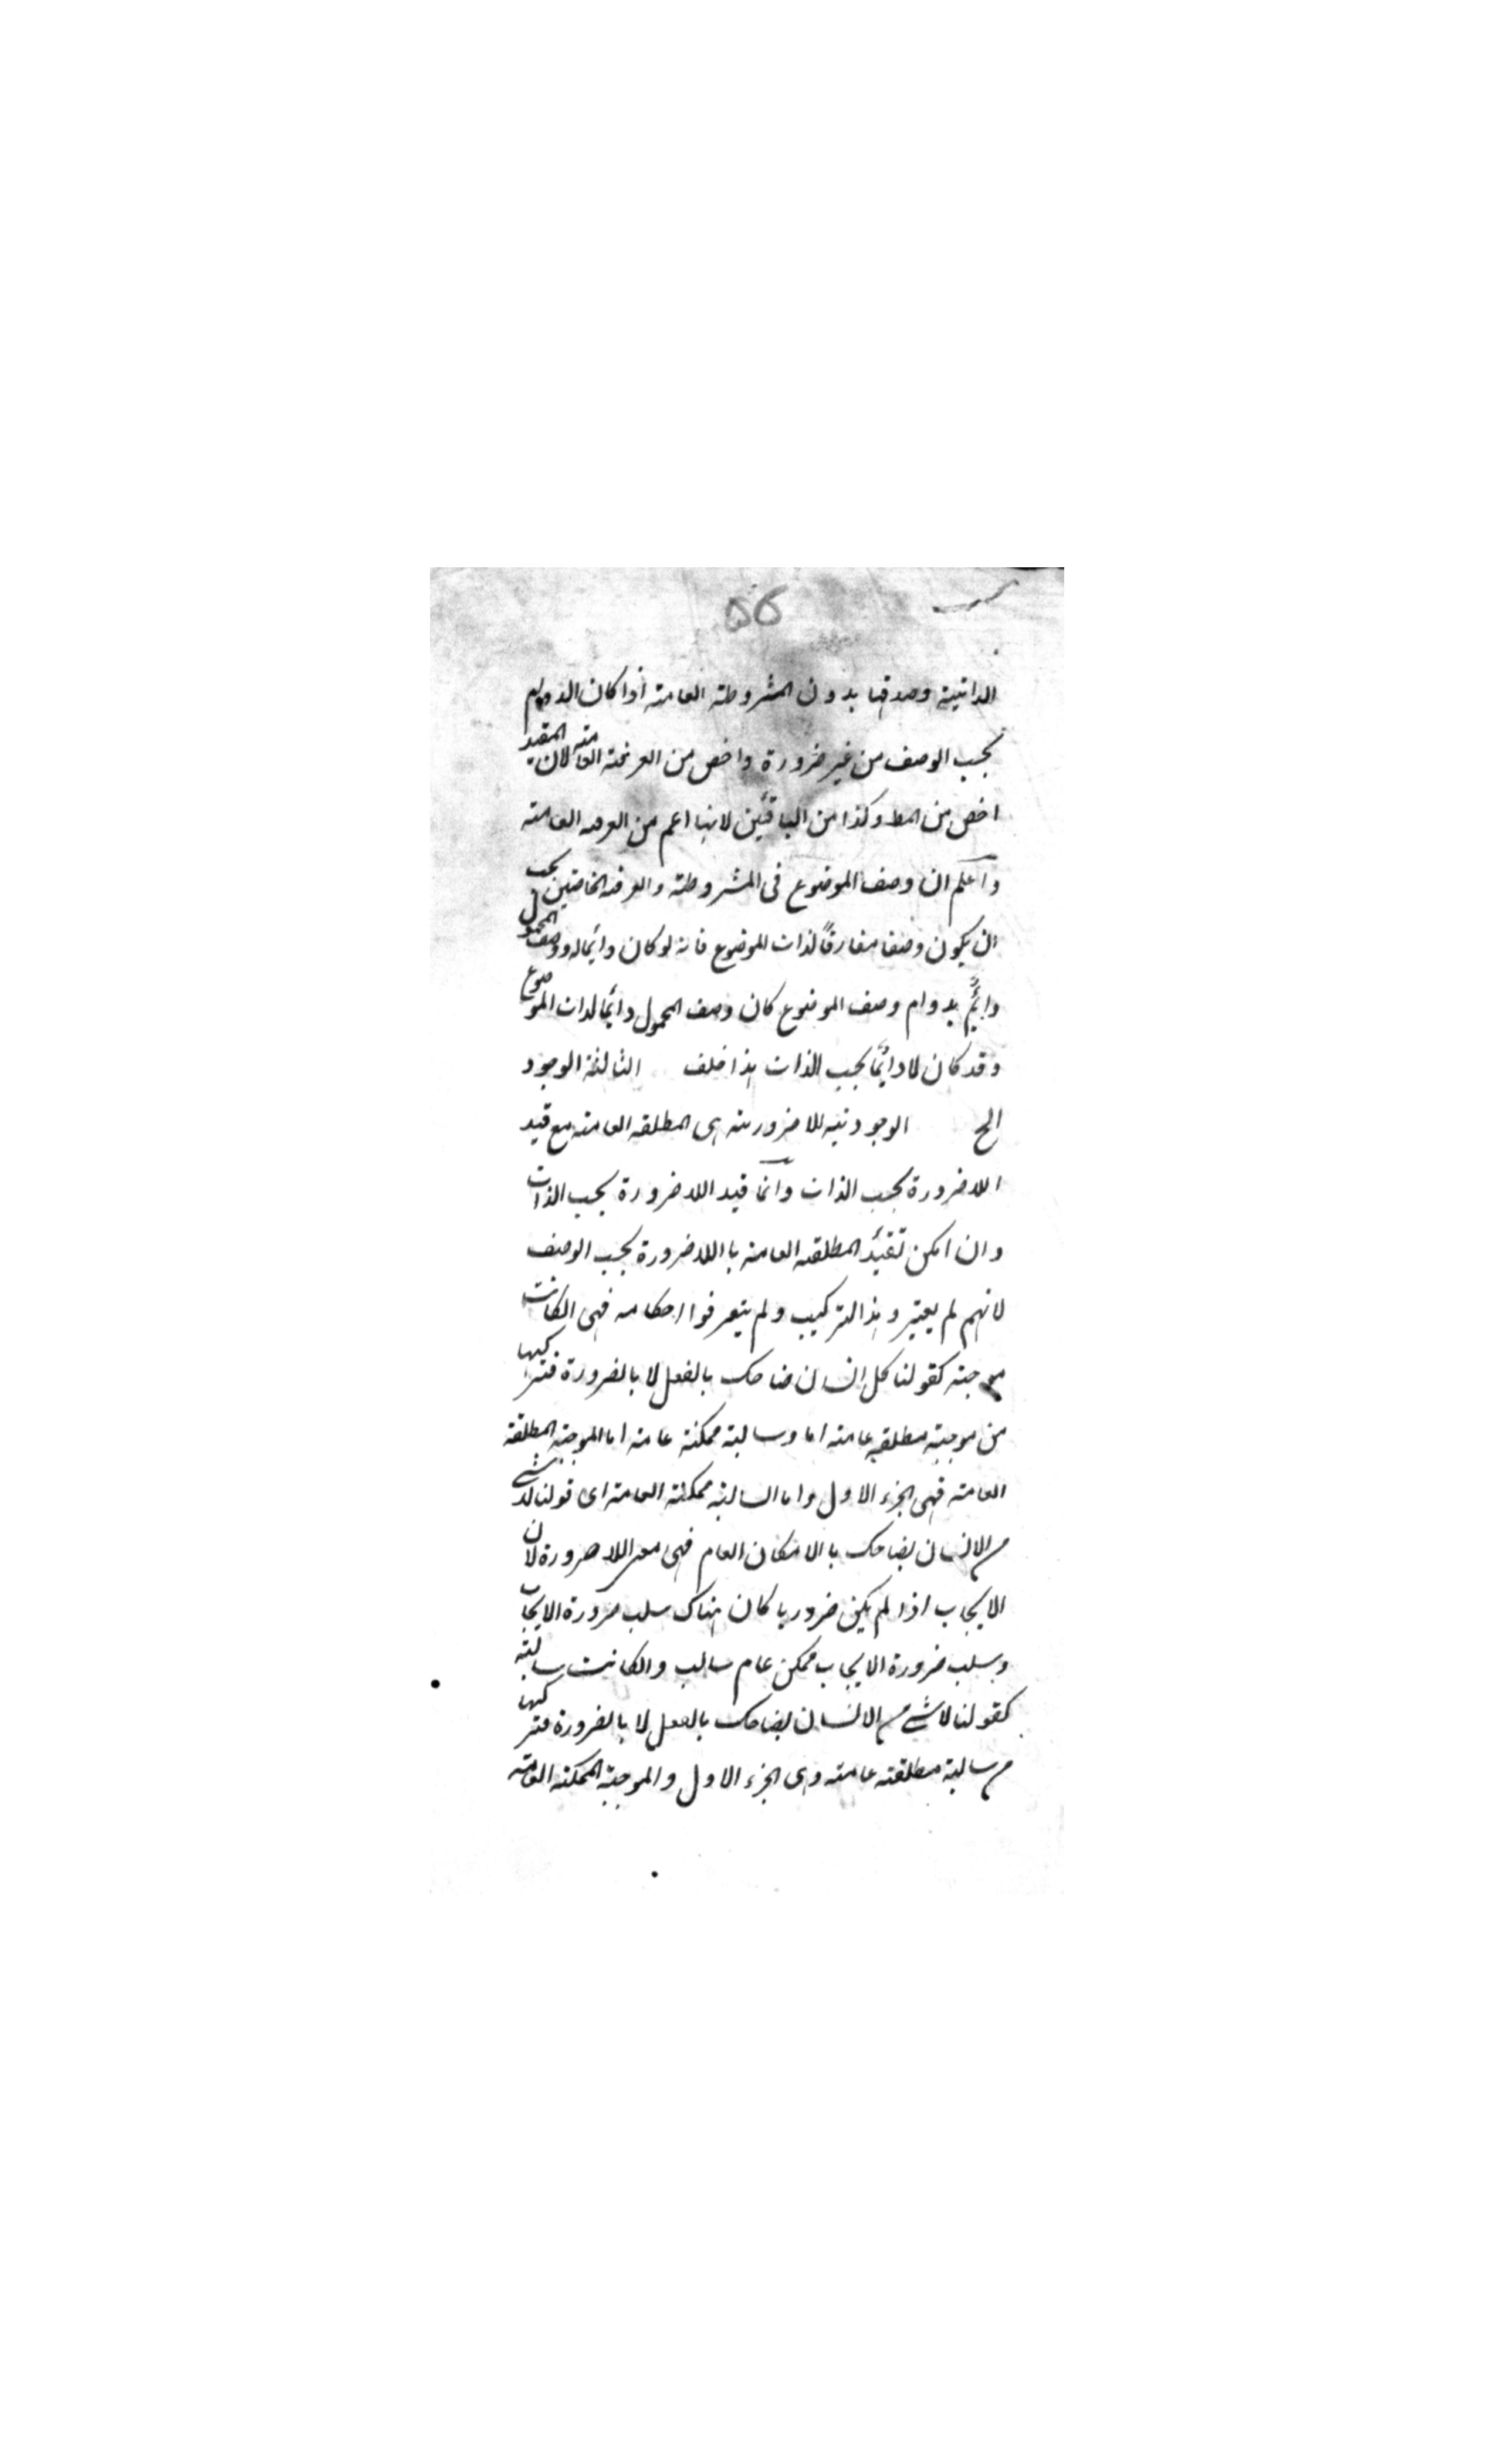 ۵۵
الداتيية وصدقها بدون المشروطة العامة اذا كان الدوام
بحسب الوصف من غير ضرورة واخص من العرفية العامة لان المقيد
اخص من المط وكذا من الباقيين لانها اعم من العرفيه العامة
واعلم ان وصف الموضوع فى المشروطة والعرفيه الخاصتين يجب
ان يكون وصفا مفارقاً لذات الموضوع فانه لو كان دايما له ووصف المحمول
دايمٌ بدوام وصف الموضوع كان وصف المحمول دايما لذات الموضوع
وقد كان لا دايمًا بحسب الذات هذا خلف الثالثة الوجود
الخ الوجودية اللاضرورية هى المطلقه العامة مع قيد
اللاضرورة بحسب الذات وانما قيد اللاضرورة بحسب الذات
وان امكن تقئيد المطلقه العامة با اللاضرورة بحسب الوصف
لانهم لم يعتبروا هذا التركيب ولم يتعرفوا احكامه فهى ان كانت
موجبة كقولنا كل انسان ضاحك بالفعل لا بالضرورة فتركيبها
من موجبة مطلقه عامة اما وسالبة ممكنة عامة اما الموجبة المطلقة
العامة فهى الجزء الاول واما السالبة ممكنة العامة اى قولنا لا شئ
من الانسان بضاحك با الامكان العام فهى معنى اللاضرورة لان
الايجاب اذا لم يكن ضروريا كان هناك سلب ضرورة الايجاب
وسلب ضرورة الايجاب ممكن عام سالب وان كانت سالبة
كقولنا لا شئ من الانسان بضاحك بالفعل لا بالضرورة فتركيبها
من سالبة مطلقة عامة وهى الجزء الاول والموجبة الممكنة العامة